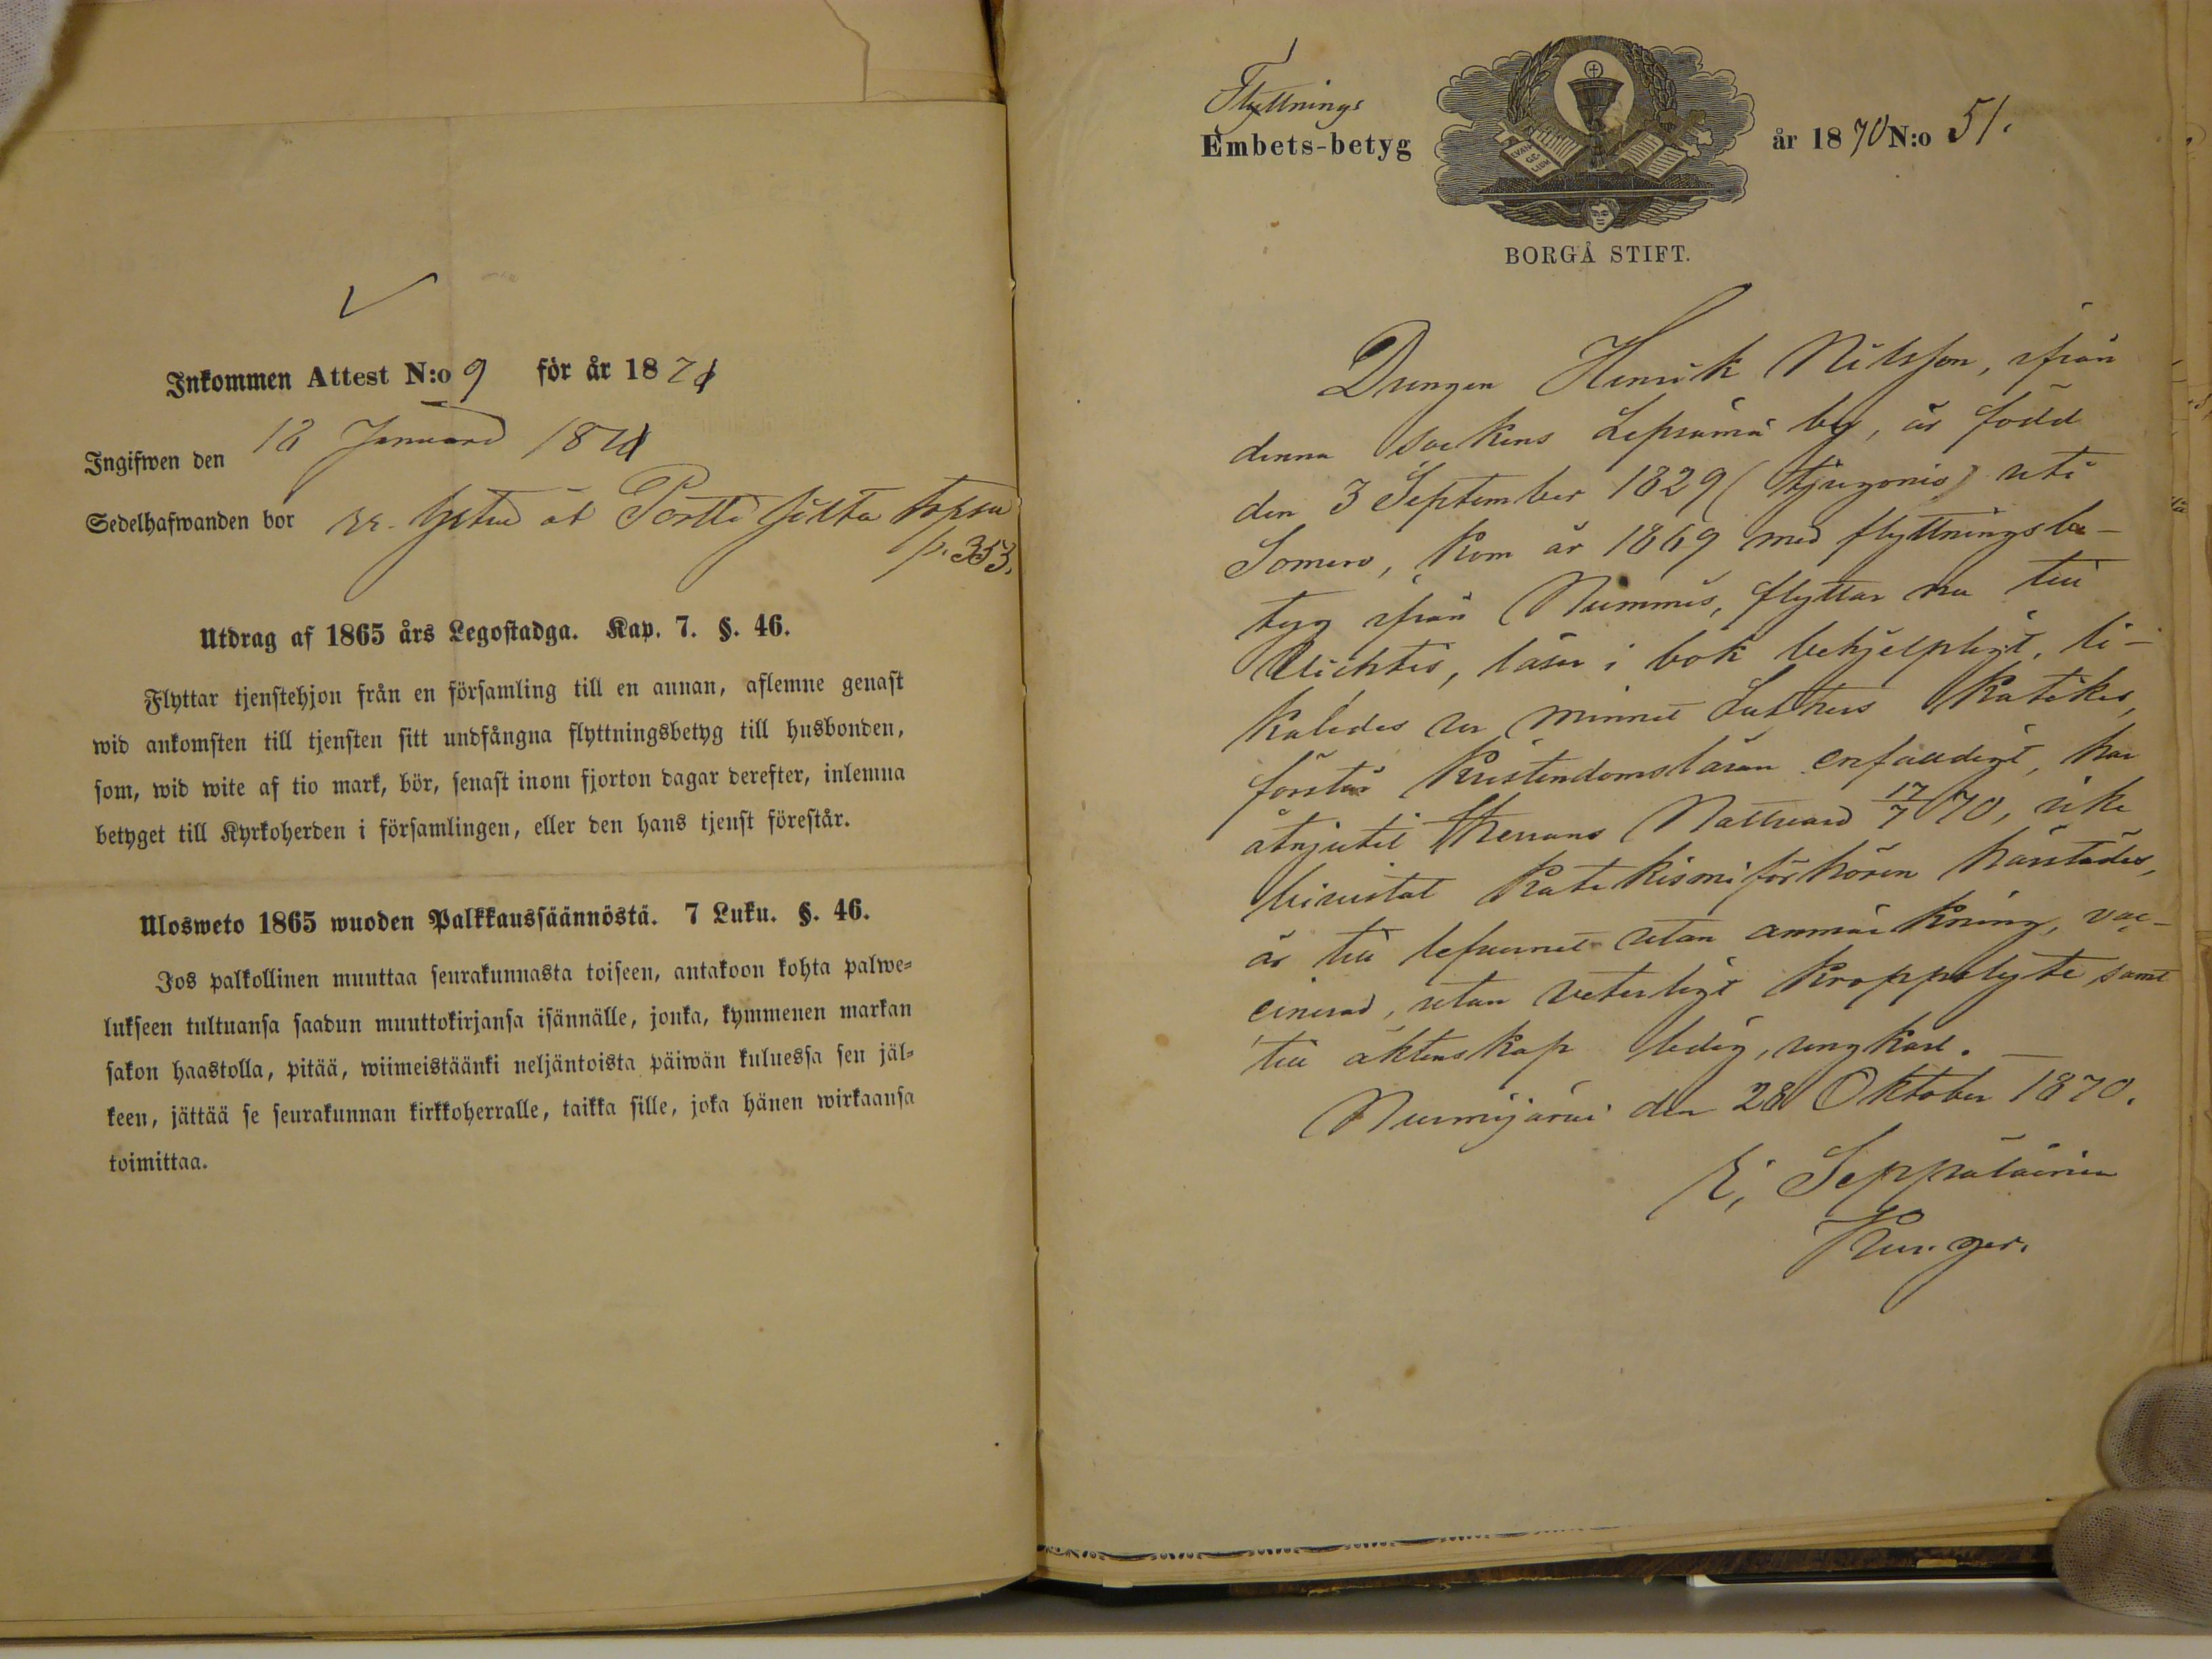 Inkommen Attest N:o 9 för år 1871
Ingifwen den 18 Januari 1871
Sedelhafwanden bor åt Portti
p. 353.
Utdrag af 1865 års Legostadga. Kap. 7. §. 46.
Flyttar tjenstehjon från en församling till en annan, aflemne genast
wid ankomsten till tjensten sitt undfångna flyttningsbetyg till husbonden,
som, wid wite af tio mark, bör, senast inom fjorton dagar derefter, inlemna
betyget till Kyrkoherden i församlingen, eller den hans tjenst förestår.
Ulosweto 1865 wuoden Palkkaussäännöstä. 7 Luku. §. 46.
Jos palkollinen muuttaa seurakunnasta toiseen, antakoon kohta palwe-
lukseen tultuansa saadun muuttokirjansa isännälle, jonka, kymmenen markan
sakon haastolla, pitää, wiimeistäänki neljäntoista päiwän kuluessa sen jäl-
keen, jättää se seurakunnan kirkkoherralle, taikka sille, joka hänen wirkaansa
toimittaa.
Flyttnings
Embets-betyg
år 1870 N:o 51.
EVAN
GE-
LIUM
BORGÅ STIFT.
Drengen Henrik Nilsson, ifrån
denna sockens Lepsämä by, är född
den 3 September 1829 (tjugonio) uti
Somero, kom år 1869 med flyttningsbe-
tyg ifrån Nummis, flyttar nu till
Wichtis, läser i bok behjelpligt, li-
kaledes ur minnet Luthers Katekes,
förstår Kristendomsläran enfaldigt, har
åtnjutit Herrans Nattvard 17/7 70,
bivistat Katekismiförhören härstädes,
är till lefvernet utan anmärkning, vac-
cinerad, utan veterligt kroppslyte samt
till äktenskap ledig, ungkarl.
Nurmijärvi den 28 Oktober 1870.
E. Seppäläinen